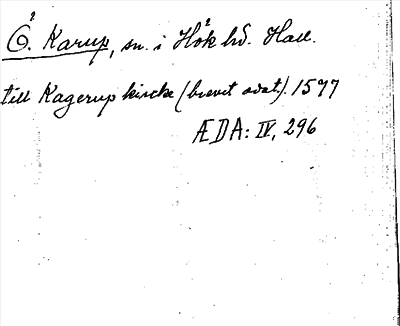 Ö. Karup, sn. i Hök hd. Hall.
till Kagerup kircke (brevet odat.). 1577
ÆDA: IV, 296